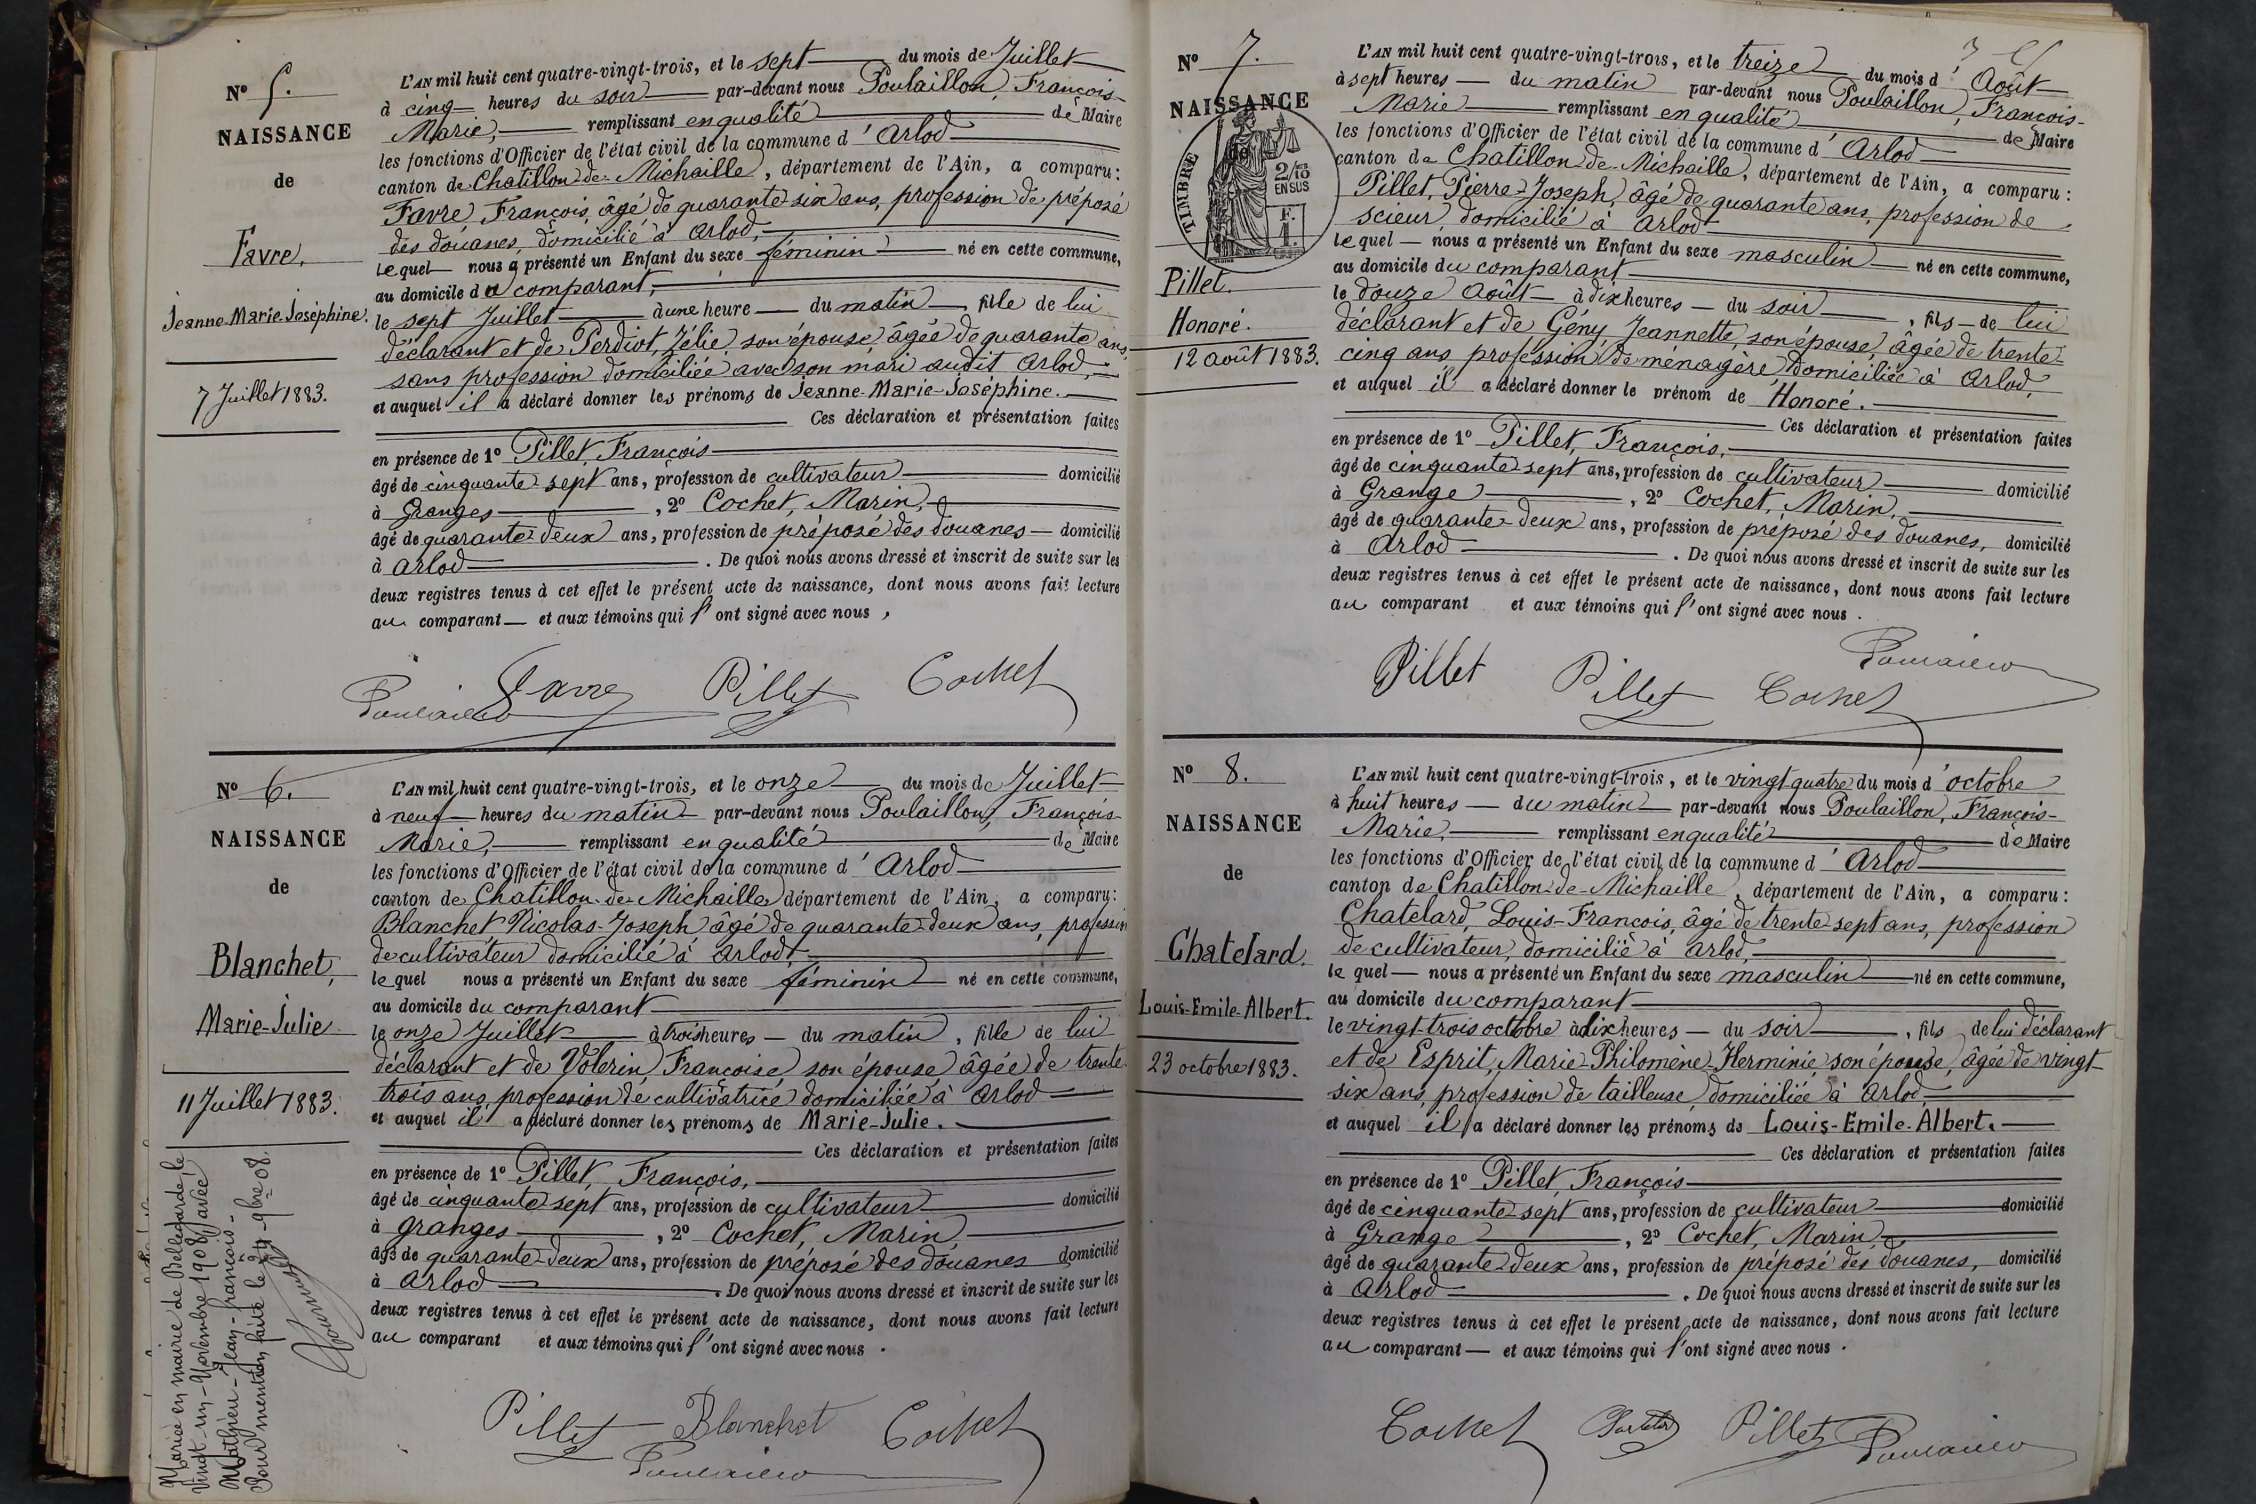 Nº 5.
NAISSANCE
de
Favre,
Jeanne-Marie-Joséphine.
7 Juillet 1883.
L'AN mil huit cent quatre-vingt-trois, et le sept du mois de Juillet
à cinq heures du soir par-devant nous Poulaillon, François-
Marie, remplissant en qualité de Maire
les fonctions d'Officier de l'état civil de la commune d'Arlod
canton de Chatillon-de-Michaille, département de l'Ain, a comparu:
Favre, François, âgé de quarante-six ans, profession de préposé
des douanes, domicilié à Arlod,
lequel nous a présenté un Enfant du sexe féminin né en cette commune,
au domicile du comparant,
le sept Juillet à une heure du matin, fille de lui
déclarant et de Perdiot, Zélie, son épouse âgée de quarante ans,
sans profession domiciliée avec son mari audit Arlod,
et auquel il a déclaré donner les prénoms de Jeanne-Marie-Joséphine.
Ces déclaration et présentation faites
en présence de 1º Pillet, François
âgé de cinquante-sept ans, profession de cultivateur domicilié
à Granges, 2º Cochet, Marin,
âgé de quarante-deux ans, profession de préposé des douanes domicilié
à Arlod. De quoi nous avons dressé et inscrit de suite sur les
deux registres tenus à cet effet le présent acte de naissance, dont nous avons fait lecture
au comparant et aux témoins qui l'ont signé avec nous,
Poulaillon Favre Pillet Cochet
Nº 6.
NAISSANCE
de
Blanchet,
Marie-Julie
11 Juillet 1883.
Mariée en mairie de Bellegarde le
Vingt-un-Novembre 1908 avec
Mathieu-Jean-François-
Pour mention faite le 9bre 08.
L'AN mil huit cent quatre-vingt-trois, et le onze du mois de Juillet
à neuf heures du matin par-devant nous Poulaillon, François-
Marie, remplissant en qualité de Maire
les fonctions d'Officier de l'état civil de la commune d'Arlod
canton de Chatillon-de-Michaille département de l'Ain, a comparu:
Blanchet Nicolas-Joseph âgé de quarante-deux ans, profession
de cultivateur domicilié à Arlod,
lequel nous a présenté un Enfant du sexe féminin né en cette commune,
au domicile du comparant
le onze Juillet à trois heures du matin, fille de lui
déclarant et de Volerin, Françoise son épouse âgée de trente-
trois ans, profession de cultivatrice domiciliée à Arlod
et auquel il a déclaré donner les prénoms de Marie-Julie.
Ces déclaration et présentation faites
en présence de 1º Pillet, François,
âgé de cinquante-sept ans, profession de cultivateur domicilié
à Granges, 2º Cochet, Marin
âgé de quarante-deux ans, profession de préposé des douanes domicilié
à Arlod. De quoi nous avons dressé et inscrit de suite sur les
deux registres tenus à cet effet le présent acte de naissance, dont nous avons fait lecture
au comparant et aux témoins qui l'ont signé avec nous.
Pillet Blanchet Cochet
Poulaillon
Nº 7.
NAISSANCE
de
TIMBRE
2/10
EN SUS
F.
1.
Pillet.
Honoré.
12 août 1883.
L'AN mil huit cent quatre-vingt-trois, et le treize du mois d'Août
à sept heures du matin par-devant nous Poulaillon, François-
Marie remplissant en qualité de Maire
les fonctions d'Officier de l'état civil de la commune d'Arlod
canton de Chatillon-de-Michaille, département de l'Ain, a comparu:
Pillet, Pierre-Joseph, âgé de quarante ans, profession de
scieur, domicilié à Arlod
lequel nous a présenté un Enfant du sexe masculin né en cette commune,
au domicile du comparant
le douze Août à dix heures du soir, fils de lui
déclarant et de Gény, Jeannette, son épouse, âgée de trente-
cinq ans profession de ménagère domiciliée à Arlod,
et auquel il a déclaré donner le prénom de Honoré.
Ces déclaration et présentation faites
en présence de 1º Pillet, François,
âgé de cinquante-sept ans, profession de cultivateur domicilié
à Grange, 2º Cochet, Marin,
âgé de quarante-deux ans, profession de préposé des douanes, domicilié
à Arlod. De quoi nous avons dressé et inscrit de suite sur les
deux registres tenus à cet effet le présent acte de naissance, dont nous avons fait lecture
au comparant et aux témoins qui l'ont signé avec nous.
Pillet Pillet Cochet Poulaillon
Nº 8.
NAISSANCE
de
Chatelard.
Louis-Emile-Albert.
23 octobre 1883.
L'AN mil huit cent quatre-vingt-trois, et le vingt quatre du mois d'octobre
à huit heures du matin par-devant nous Poulaillon, François-
Marie, remplissant en qualité de Maire
les fonctions d'Officier de l'état civil de la commune d'Arlod
canton de Chatillon-de-Michaille, département de l'Ain, a comparu:
Chatelard, Louis-François, âgé de trente-sept ans, profession
de cultivateur, domicilié à Arlod,
lequel nous a présenté un Enfant du sexe masculin né en cette commune,
au domicile du comparant
le vingt-trois octobre à dix heures du soir, fils de lui déclarant
et de Esprit, Marie-Philomène-Herminie son épouse, âgée de vingt-
six ans, profession de tailleuse, domiciliée à Arlod,
et auquel il a déclaré donner les prénoms de Louis-Emile-Albert.
Ces déclaration et présentation faites
en présence de 1º Pillet, François
âgé de cinquante-sept ans, profession de cultivateur domicilié
à Grange, 2º Cochet, Marin
âgé de quarante-deux ans, profession de préposé des douanes, domicilié
à Arlod. De quoi nous avons dressé et inscrit de suite sur les
deux registres tenus à cet effet le présent acte de naissance, dont nous avons fait lecture
au comparant et aux témoins qui l'ont signé avec nous.
Cochet Chatelard Pillet Poulaillon